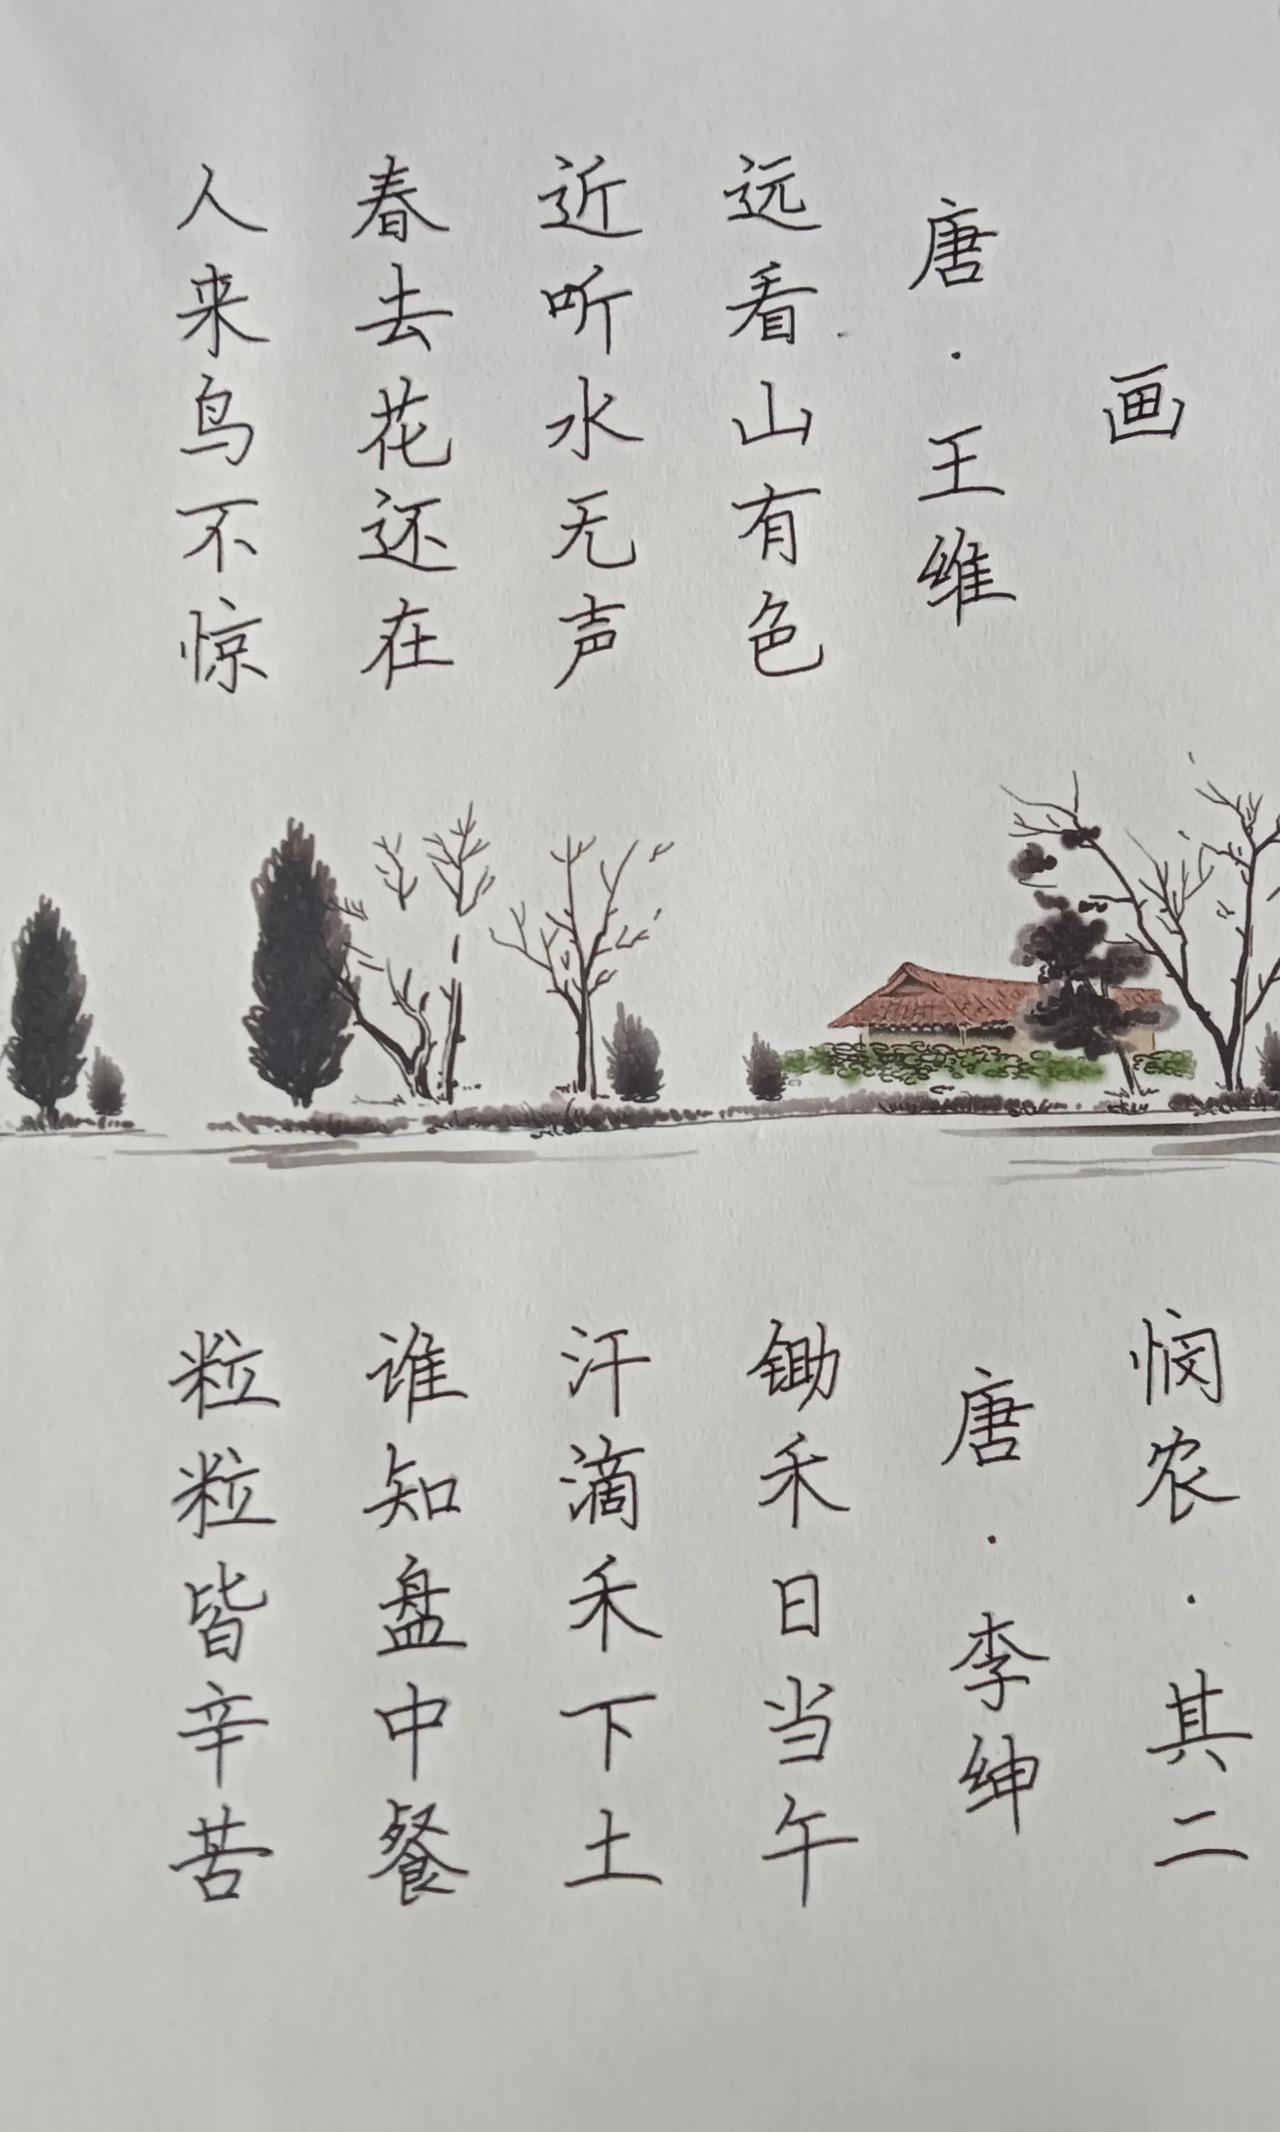 画
唐·王维
远看山有色
近听水无声
春去花还在
人来鸟不惊
悯农·其二
唐·李绅
锄禾日当午
汗滴禾下土
谁知盘中餐
粒粒皆辛苦